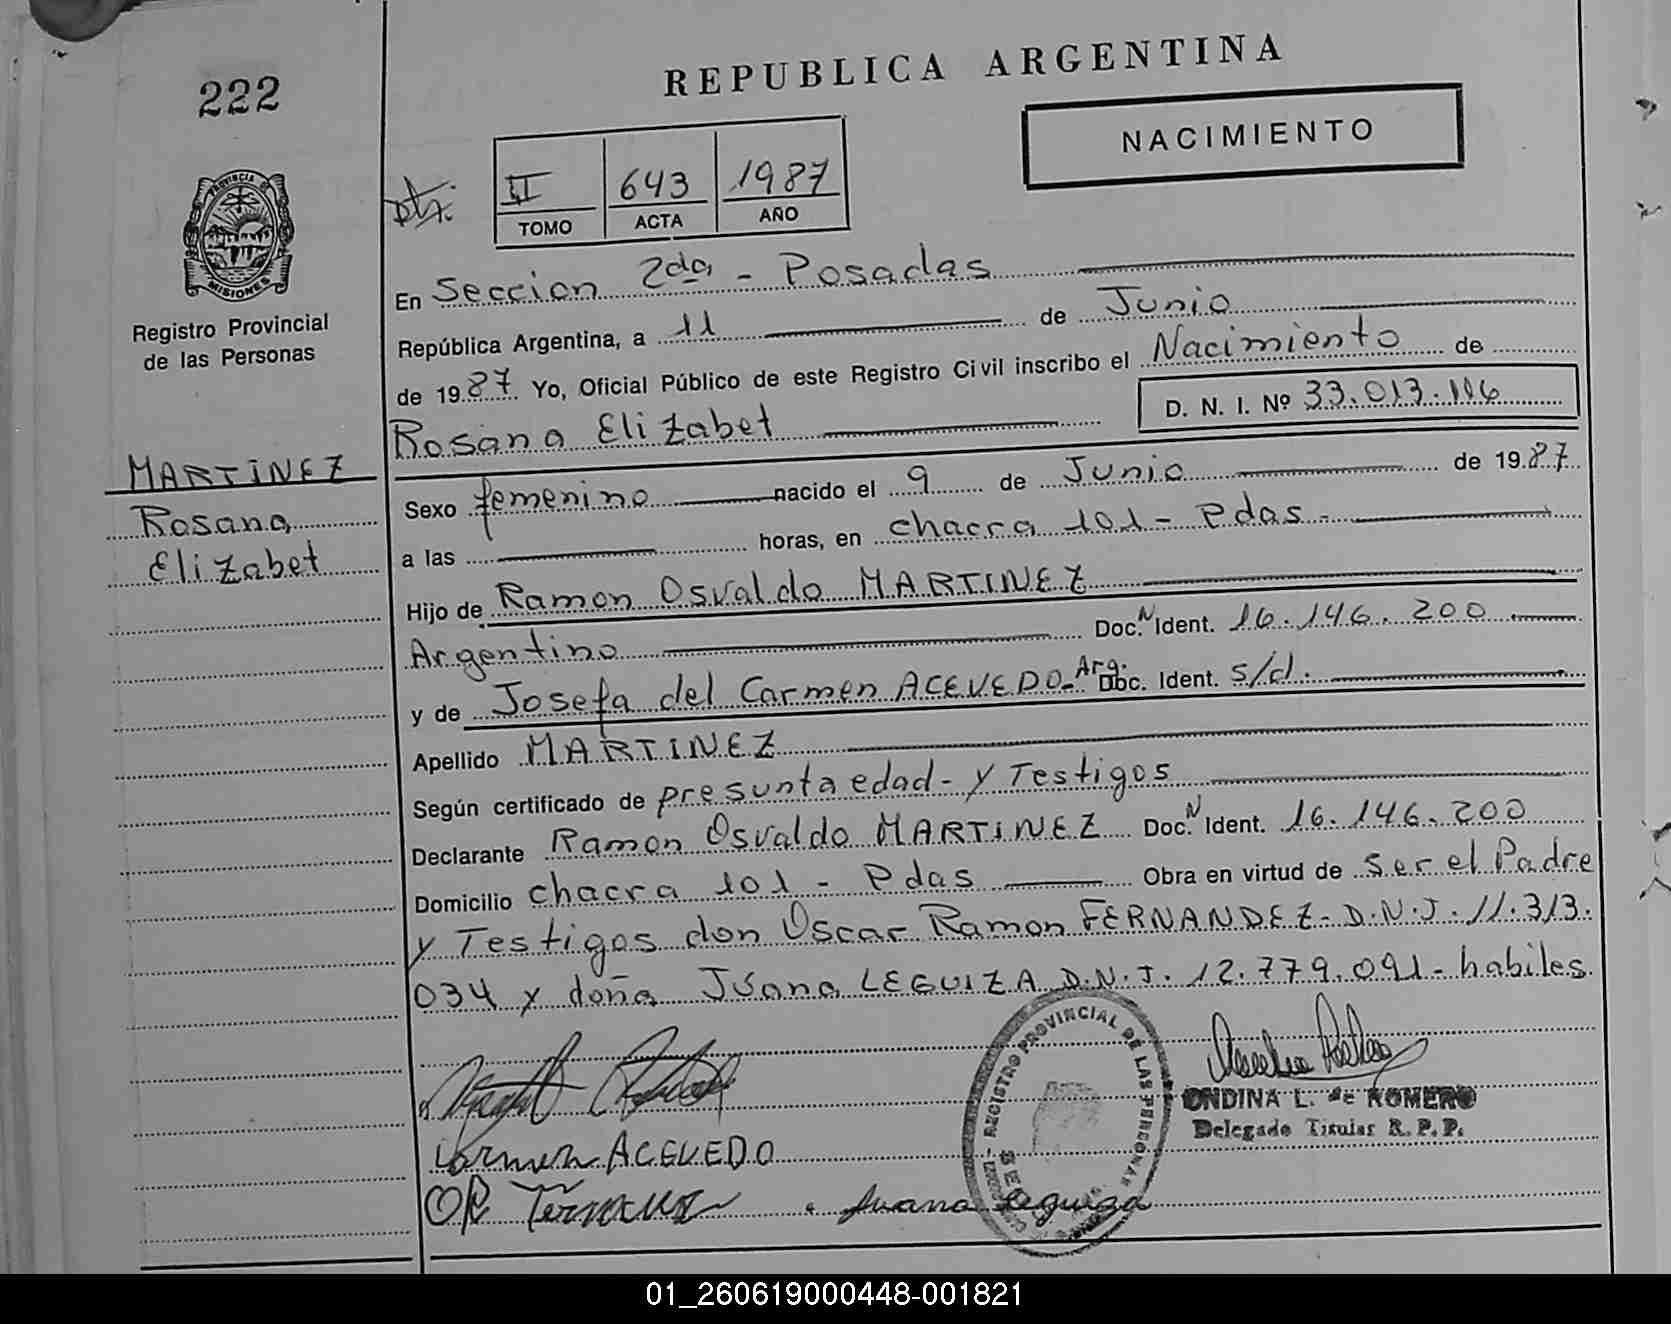 222
REPUBLICA ARGENTINA
NACIMIENTO
II 643 1987
TOMO ACTA AÑO
PROVINCIA DE
MISIONES
Registro Provincial
de las Personas
En Seccion 2da - Posadas
República Argentina, a 11 de Junio
de 1987 Yo, Oficial Público de este Registro Civil inscribo el Nacimiento de
Rosana Elizabet D. N. I. Nº 33.013.116
MARTINEZ
Rosana
Elizabet
Sexo femenino nacido el 9 de Junio de 1987
a las horas, en chacra 101 - Pdas -
Hijo de Ramon Osvaldo MARTINEZ
Argentino Doc. N Ident. 16.146.200
y de Josefa del Carmen ACEVEDO - Arg. Doc. Ident. s/d.
Apellido MARTINEZ
Según certificado de presunta edad - y Testigos
Declarante Ramon Osvaldo MARTINEZ Doc. N Ident. 16.146.200
Domicilio chacra 101 - Pdas Obra en virtud de ser el Padre
y Testigos don Oscar Ramon FERNANDEZ - D.N.I. 11.313.
034 y doña Juana LEGUIZA D.N.I. 12.779.091 - habiles.
REGISTRO PROVINCIAL DE LAS PERSONAS
ONDINA L. de ROMERO
Delegado Titular R. P. P.
Carmen ACEVEDO
Juana Leguiza
01_260619000448-001821